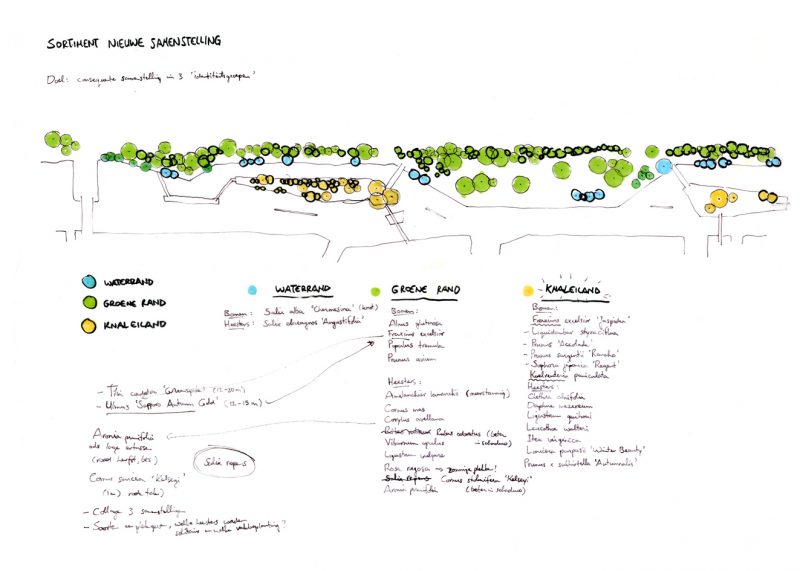 SORTIMENT NIEUWE SAMENSTELLING
Doel: consequente samenstelling in 3 'identiteitsgroepen'
WATERRAND
GROENE RAND
KNALEILAND
WATERRAND
Bomen: Salix alba 'Chermesina' (knot)
Heesters: Salix eleagnos 'Angustifolia'
GROENE RAND
Bomen:
Alnus glutinosa
Fraxinus excelsior
Populus tremula
Prunus avium
Heesters:
Amelanchier lamarckii (meerstammig)
Cornus mas
Corylus avellana
Rubus odoratus (beter in schaduw)
Viburnum opulus
Ligustrum vulgare
Rosa rugosa → zonnige plekken!
Salix repens Cornus stolonifera 'Kelseyi'
Aronia prunifolia (beter in schaduw)
KNALEILAND
Bomen:
Fraxinus excelsior
- Liquidambar styraciflua
- Prunus 'Accolade'
- Prunus sargentii 'Rancho'
- Sophora japonica 'Regent'
Koelreuteria paniculata
Heesters:
Clethra alnifolia
Daphne mezereum
Ligustrum
Leucothoe walteri
Itea virginica
Lonicera purpusii 'Winter Beauty'
Prunus x subhirtella 'Autumnalis'
- Tilia cordata 'Greenspire' (12-20m)
- Ulmus 'Sapporo Autumn Gold' (12-15m)
Aronia prunifolia
als lage
(rood herfst, bes)
Salix repens
Cornus sericea 'Kelseyi'
(1m) rode tak
- Collage 3 samenstelling
- Soorten en plekgoed, welke heesters worden
solitair en welke vakbeplanting?